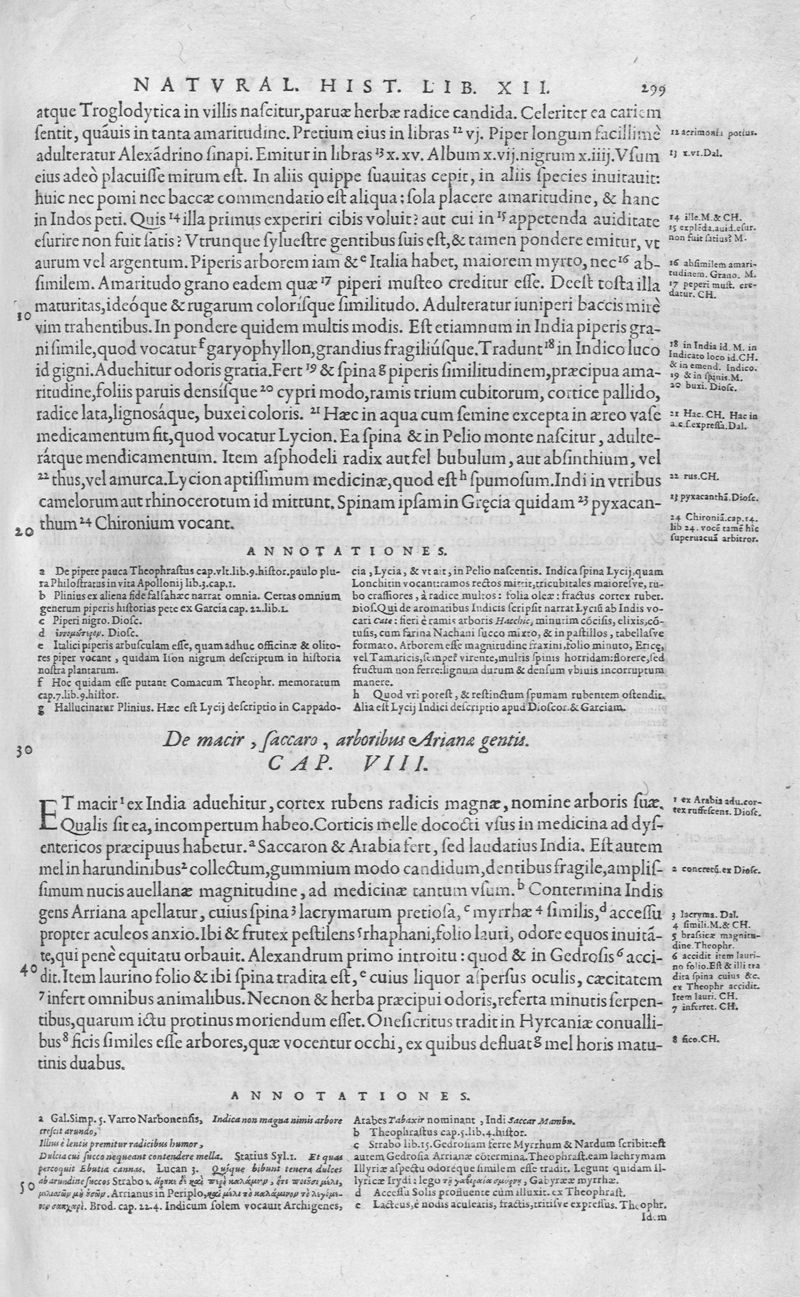 NATVRAL. HIST. LIB. XII.
299
atque Troglodytica in villis naſcitur,paruæ herbæ radice candida. Celeriter ea cariem
ſentit, quãuis in tanta amaritudine. Pretium eius in libras ¹² vj. Piper longum facillimè
adulteratur Alexãdrino ſinapi. Emitur in libras ¹³ x.xv. Album x.vij.nigrum x.iiij.Vſum
eius adeò placuiſſe mirum eſt. In aliis quippe ſuauitas cepit, in aliis ſpecies inuitauit:
huic nec pomi nec baccæ commendatio eſt aliqua: ſola placere amaritudine, & hanc
in Indos peti. Quis ¹⁴ illa primus experiri cibis voluit? aut cui in ¹⁵ appetenda auiditate
eſurire non fuit ſatis? Vtrunque ſylueſtre gentibus ſuis eſt,& tamen pondere emitur, vt
aurum vel argentum. Piperis arborem iam & ᵉ Italia habet, maiorem myrto, nec ¹⁶ ab-
ſimilem. Amaritudo grano eadem quæ ¹⁷ piperi muſteo creditur eſſe. Deeſt toſta illa
10 maturitas,ideóque & rugarum coloriſque ſimilitudo. Adulteratur iuniperi baccis mirè
vim trahentibus. In pondere quidem multis modis. Eſt etiamnum in India piperis gra-
ni ſimile,quod vocatur ᶠ garyophyllon,grandius fragiliúſque.Tradunt ¹⁸ in Indico luco
id gigni.Aduehitur odoris gratia.Fert ¹⁹ & ſpina ᵍ piperis ſimilitudinem,præcipua ama-
ritudine,foliis paruis denſiſque ²⁰ cypri modo,ramis trium cubitorum, cortice pallido,
radice lata,lignosáque, buxei coloris. ²¹ Hæc in aqua cum ſemine excepta in æreo vaſe
medicamentum fit,quod vocatur Lycion. Ea ſpina & in Pelio monte naſcitur, adulte-
rátque mendicamentum. Item aſphodeli radix aut fel bubulum, aut abſinthium, vel
²² thus,vel amurca.Lycion aptiſſimum medicinæ,quod eſt ʰ ſpumoſum.Indi in vtribus
camelorum aut rhinocerotum id mittunt. Spinam ipſam in Gręcia quidam ²³ pyxacan-
20 thum ²⁴ Chironium vocant.
12 acrimonia potius.
13 x.vi.Dal.
14 ille.M.& CH.
15 explẽda.auid.eſur.
non fuit ſatius? M.
16 abſimilem amari-
tudinem. Grano. M.
17 peperi muſt. cre-
datur. CH.
18 in India id. M. in
Indicato loco id.CH.
& in emend. Indico.
19 & in ſpinis.M.
20 buxi. Dioſc.
21 Hac. CH. Hac in
a.c.ſ.expreſſa.Dal.
22 rus.CH.
23 pyxacanthã.Dioſc.
24 Chironiã.cap.14.
lib 24. vocẽ tamẽ hîc
ſuperuacuã arbitror.
ANNOTATIONES.
a De pipere pauca Theophraſtus cap.vlt.lib.9.hiſtor.paulo plu-
ra Philoſtratus in vita Apollonij lib.3.cap.1.
b Plinius ex aliena fide falſahæc narrat omnia. Certas omnium
generum piperis hiſtorias pete ex Garcia cap. 22.lib.1.
c Piperi nigro. Dioſc.
d Dioſc.
e Italici piperis arbuſculam eſſe, quam adhuc officinæ & olito-
res piper vocant, quidam Iſon nigrum deſcriptum in hiſtoria
noſtra plantarum.
f Hoc quidam eſſe putant Comacum Theophr. memoratum
cap.7.lib.9.hiſtor.
g Hallucinatur Plinius. Hæc eſt Lycij deſcriptio in Cappado-
cia, Lycia, & vt ait, in Pelio naſcentis. Indica ſpina Lycij,quam
Lonchitin vocant:ramos rectos mittit,tricubitales maioreſve, ru-
bo craſſiores, à radice multos: folia oleæ: fractus cortex rubet.
Dioſ.Qui de aromatibus Indicis ſcripſit narrat Lyciũ ab Indis vo-
cari Cate: fieri è ramis arboris Hacchic, minutim cõciſis, elixis,cõ-
tuſis, cum farina Nachani ſucco mixto, & in paſtillos, tabellaſve
formato. Arborem eſſe magnitudine fraxini,folio minuto, Ericę,
vel Tamaricis,ſemper virente,multis ſpinis horridam:florere,ſed
fructum non ferre:lignum durum & denſum vbiuis incorruptum
manere.
h Quod vri poteſt, & reſtinctum ſpumam rubentem oſtendit.
Alia eſt Lycij Indici deſcriptio apud Dioſcor.& Garciam.
30
De macir, ſaccaro, arboribus Ariana gentis.
CAP. VIII.
ET macir ¹ ex India aduehitur, cortex rubens radicis magnæ, nomine arboris ſuæ.
Qualis ſit ea, incompertum habeo.Corticis melle dococti vſus in medicina ad dyſ-
entericos præcipuus habetur. ᵃ Saccaron & Arabia fert, ſed laudatius India. Eſt autem
mel in harundinibus ² collectum,gummium modo candidum,dentibus fragile,ampliſ-
ſimum nucis auellanæ magnitudine, ad medicinæ tantum vſum. ᵇ Contermina Indis
gens Arriana apellatur, cuius ſpina ³ lacrymarum pretioſa, ᶜ myrrhæ ⁴ ſimilis, ᵈ acceſſu
propter aculeos anxio. Ibi & frutex peſtilens ⁵ rhaphani,folio lauri, odore equos inuitã-
te,qui penè equitatu orbauit. Alexandrum primo introitu: quod & in Gedroſis ⁶ acci-
40 dit.Item laurino folio & ibi ſpina tradita eſt, ᵉ cuius liquor aſperſus oculis, cæcitatem
⁷ infert omnibus animalibus. Necnon & herba præcipui odoris,referta minutis ſerpen-
tibus,quarum ictu protinus moriendum eſſet. Oneſicritus tradit in Hyrcaniæ conualli-
bus ⁸ ficis ſimiles eſſe arbores,quæ vocentur occhi, ex quibus defluat ᵍ mel horis matu-
tinis duabus.
1 ex Arabia adu.cor-
tex ruffeſcens. Dioſc.
2 concretũ.ex Dioſc.
3 lacryma. Dal.
4 ſimili.M.& CH.
5 braſſicæ magnitu-
dine.Theophr.
6 accidit item lauri-
no folio.Eſt & illi tra
dita ſpina cuius &c.
ex Theophr accidit.
Item lauri. CH.
7 inferret. CH.
8 fico.CH.
ANNOTATIONES.
a Gal.Simp. 5. Varro Narbonenſis, Indica non magna nimis arbore
creſcit arundo,
Illius è lentis premitur radicibus humor,
Dulcia cui ſucco nequeant contendere mella. Statius Syl.1. Et quas
percoquit Ebutia cannas. Lucan 3. Quíque bibunt tenera dulces
ab arundine ſuccos Strabo
50 Arrianus in Periplo,
Brod. cap. 22.4. Indicum ſolem vocauit Archigenes,
Arabes Tabaxir nominant, Indi Saccar Mambu.
b Theophraſtus cap.5.lib.4.hiſtor.
c Strabo lib.15.Gedroſiam ferre Myrrhum & Nardum ſcribit:eſt
autem Gedroſia Arrianæ cõtermina.Theophraſt.eam lachrymam
Illyriæ aſpectu odoréque ſimilem eſſe tradit. Legunt quidam il-
lyricæ Irydi: lego Gabyrææ myrrhæ.
d Acceſſu Solis profluente cùm illuxit. ex Theophraſt.
e Lacteus,è nodis aculeatis, fractis,tritiſve expreſſus. Theophr.
Idem